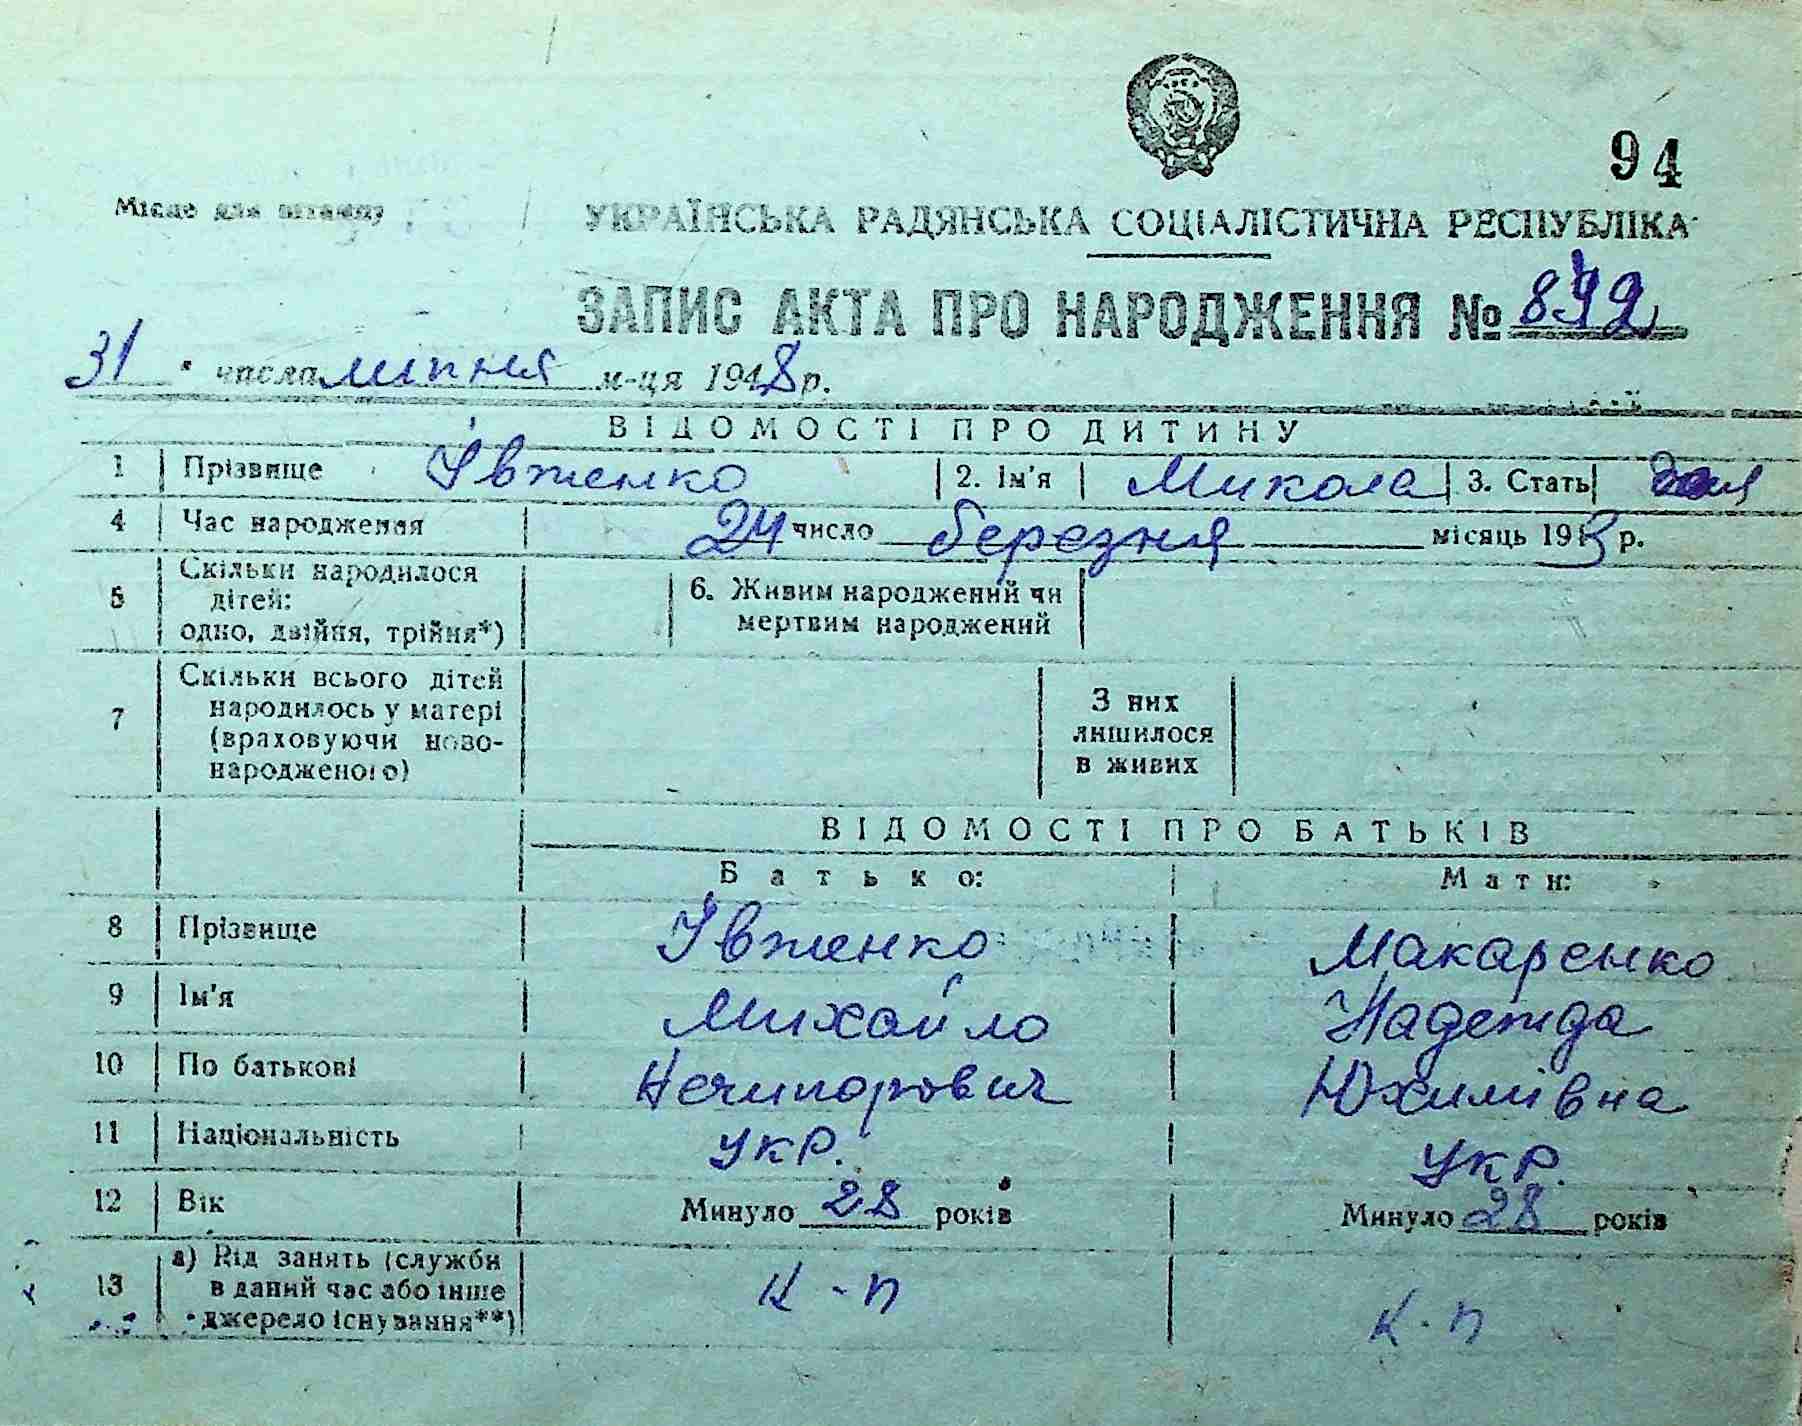 94
Місце для штампу
УКРАЇНСЬКА РАДЯНСЬКА СОЦІАЛІСТИЧНА РЕСПУБЛІКА
ЗАПИС АКТА ПРО НАРОДЖЕННЯ №
31 числа липня м-ця 1948 р.
ВІДОМОСТІ ПРО ДИТИНУ
1 Прізвище Івженко 2. Ім'я Микола 3. Стать
4 Час народження 24 число березня місяць р.
5 Скільки народилося дітей: одно, двійня, трійня*) 6. Живим народжений чи мертвим народжений
7 Скільки всього дітей народилось у матері (враховуючи новонародженого) З них лишилося в живих
ВІДОМОСТІ ПРО БАТЬКІВ
Батько: Мати:
8 Прізвище Івженко Макаренко
9 Ім'я Михайло Надежда
10 По батькові Нечипорович Юхимівна
11 Національність укр. укр.
12 Вік Минуло 28 років Минуло 28 років
13 а) Рід занять (служби в даний час або інше джерело існування**) к-п к-п